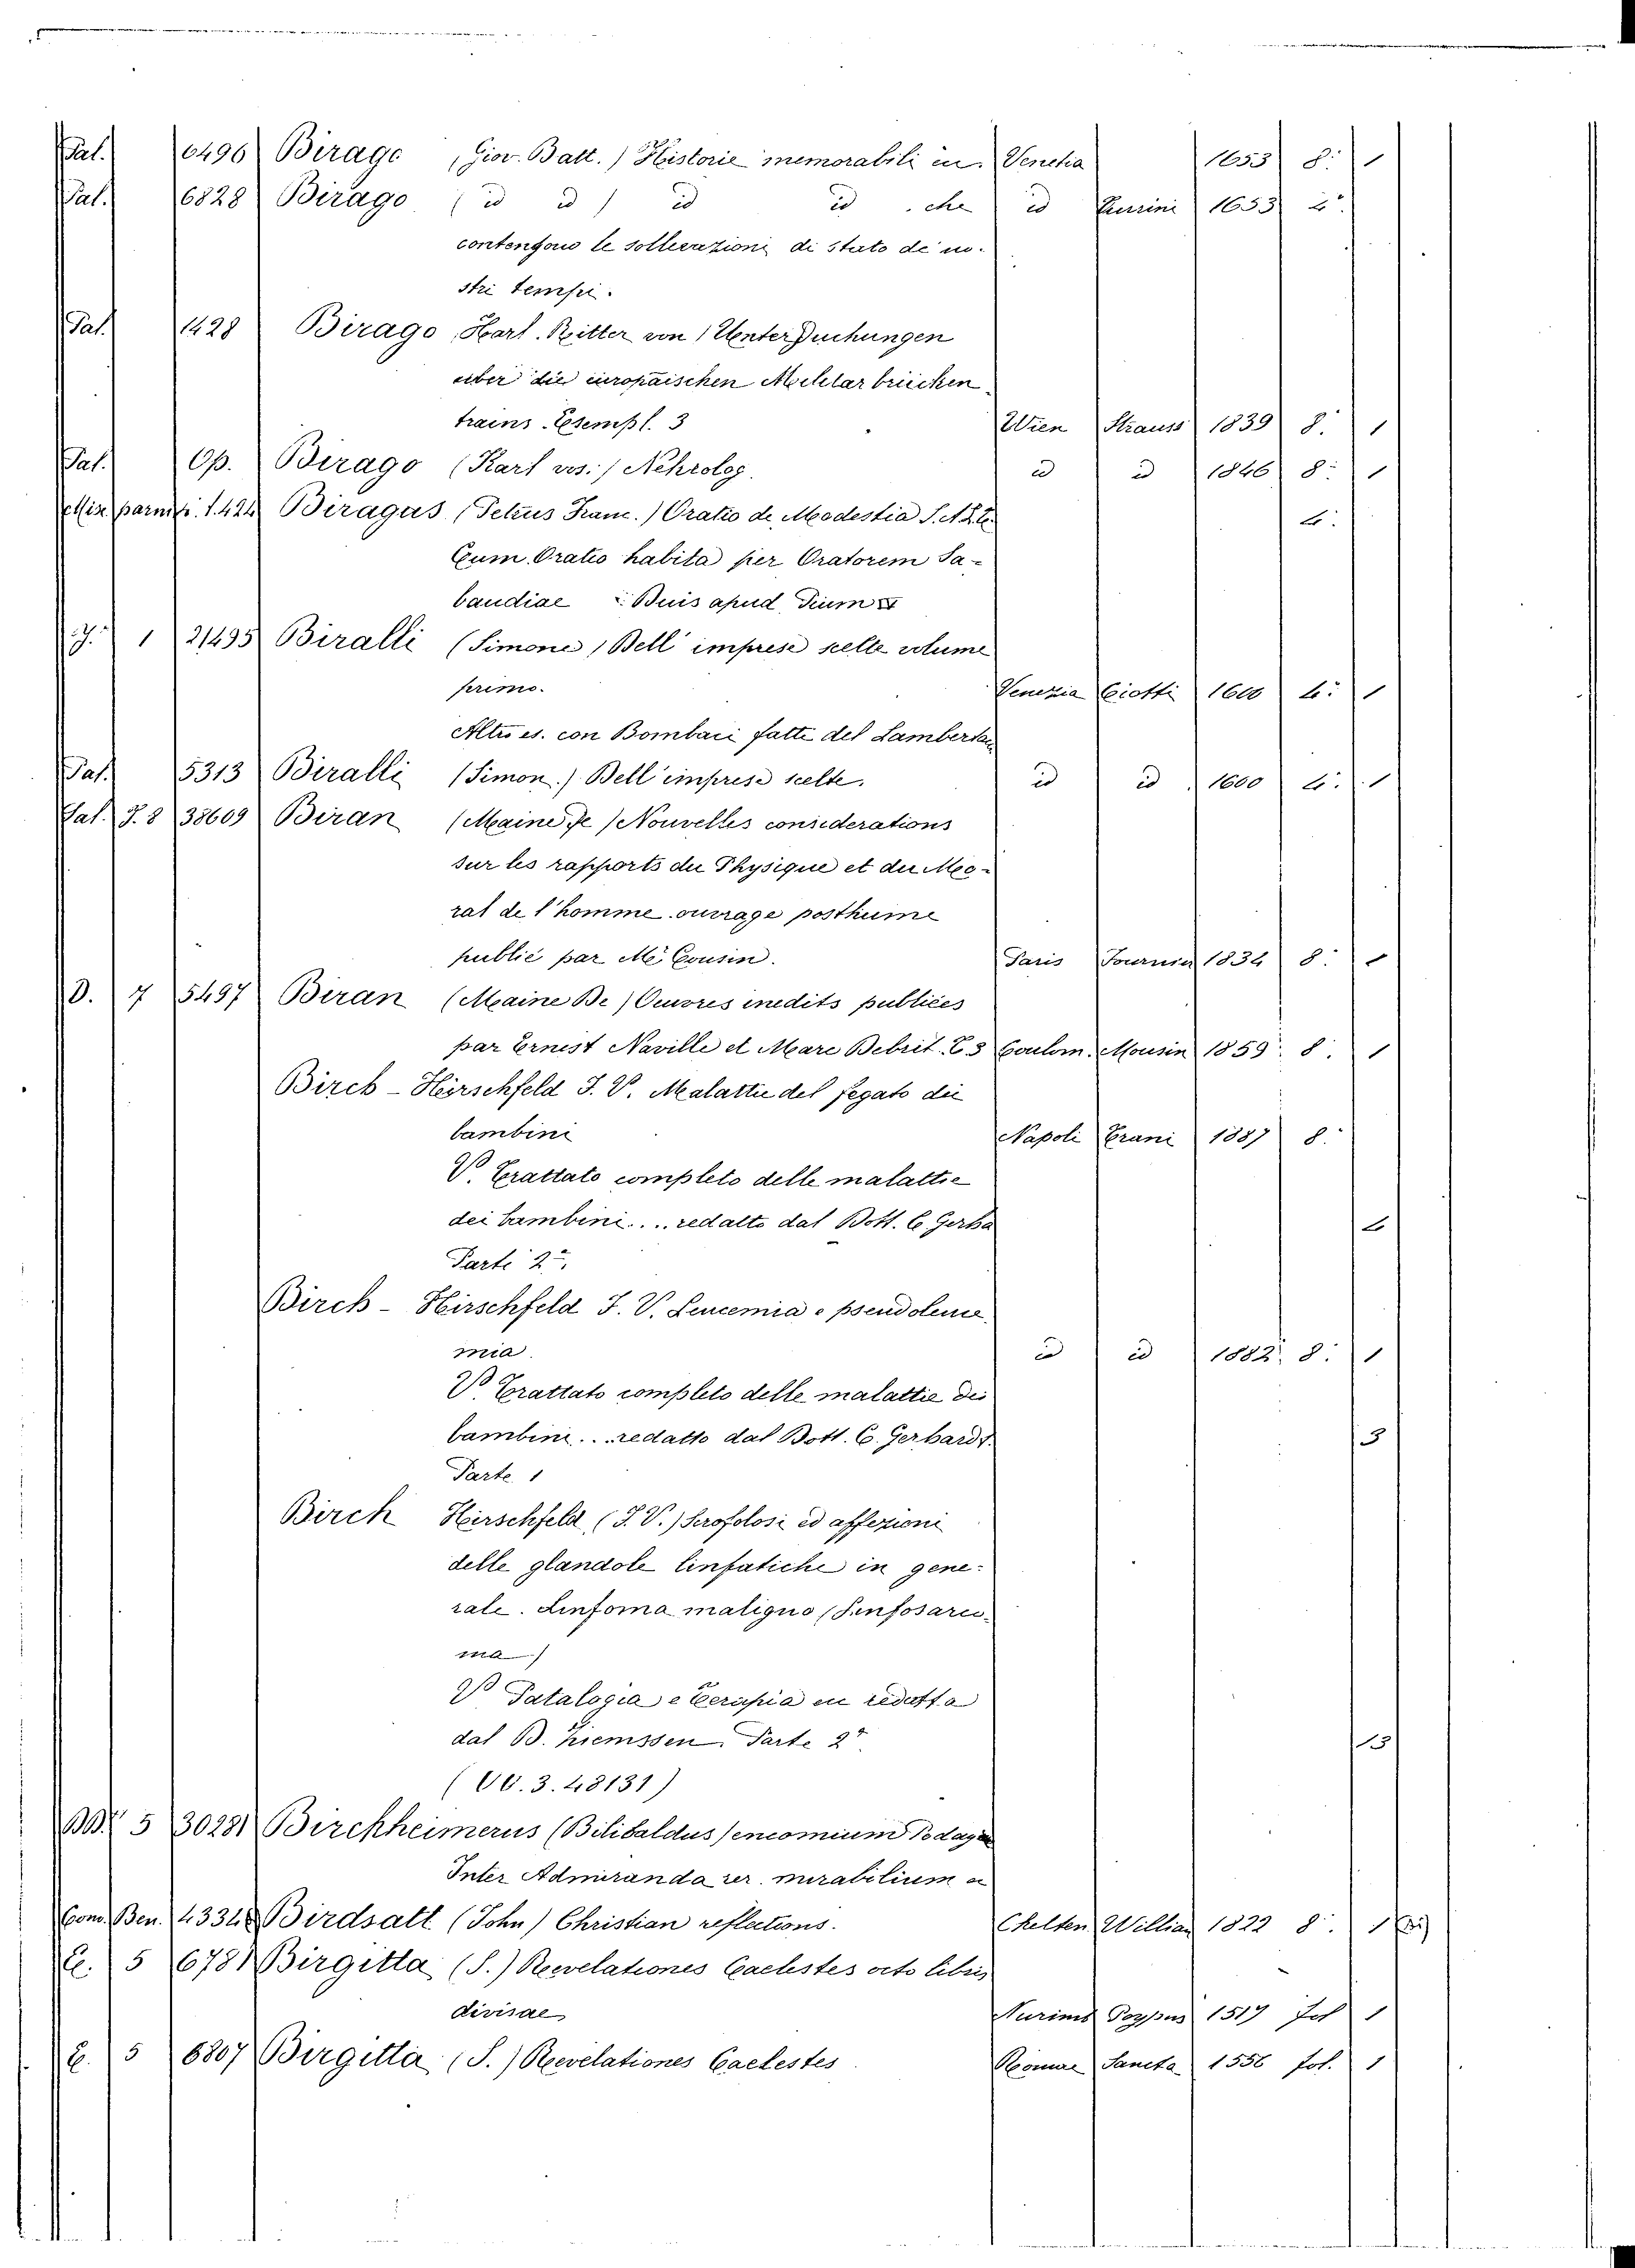 Pal. 6496 Birago (Giov. Batt.) Historie memorabili in Venetia 1653 8: 1
Pal. 6828 Birago (id id) id id che id Turrini 1653 4º.
contengono le sollevazioni di stato de' no-
stri tempi.
Pal. 1428 Birago Karl. Ritter von) Untersuchungen
über die europäischen Militar brücken
trains. Esempl. 3 Wien Strauss 1839 8. 1
Pal. Op. Birago (Karl vos.) Nehrolog. id id 1846 8: 1
Mis. parmi. 1.424 Biragus (Petrus Franc.) Oratio de Modestia 4:
Cum Oratio habita per Oratorem Sa-
baudiae Buis apud Pium
J. 1 21495 Biralli (Simone) Bell' imprese scelte volume
primo. Venezia Ciotti 1600 4: 1
Altro es. con Bombaci fatte del
Pal. 5313 Biralli (Simon.) Bell' imprese scelte. id id 1600 4: 1
Pal. J. 8 38609 Biran (Maine de) Nouvelles considerations
sur les rapports du Physique et du Mo-
ral de l'homme ouvrage posthume
publié par Mr Cousin. Paris 1834 8: 1
D. 7 5497 Biran (Maine De) Œuvres inedits publiées
par Ernest Naville et Marc Debrit. T. 3 Coulom. Mousin 1859 8. 1
Birch - Hirschfeld J. V. Malattie del fegato dei
bambini Napoli Trani 1887 8.
V. Trattato completo delle malattie
dei bambini... redatto dal Dott. C. Gerha 6
Parte 2ª.
Birch - Hirschfeld J. V. Leucemia e pseudoleuce
mia. id id 1882. 8: 1
V. Trattato completo delle malattie dei
bambini... redatto dal Dott. C. Gerhardt. 3
Parte 1
Birch Hirschfeld, (J. V.) Scrofolosi ed affezioni
delle glandole linfatiche in gene-
rale. Linfoma maligno (Linfosarco-
ma)
V. Patalogia e Terapia redatta
dal D. Ziemssen. Parte 2ª 13
(CC. 3. 48131)
BB. 5 30281 Birckheimerus (Bilibaldus) encomium Podagrae
Inter Admiranda rer. mirabilium
Con. Ben. 4334 Birdsall (John) Christian reflections. Chelten William 1822 8: 1
C. 5 6781 Birgitta (S.) Revelationes Caelestes octo libris
divisae Nurimb 1517 fol 1
C. 5 6807 Birgitta (S.) Revelationes Caelestes Romae Sancta 1556 fol. 1